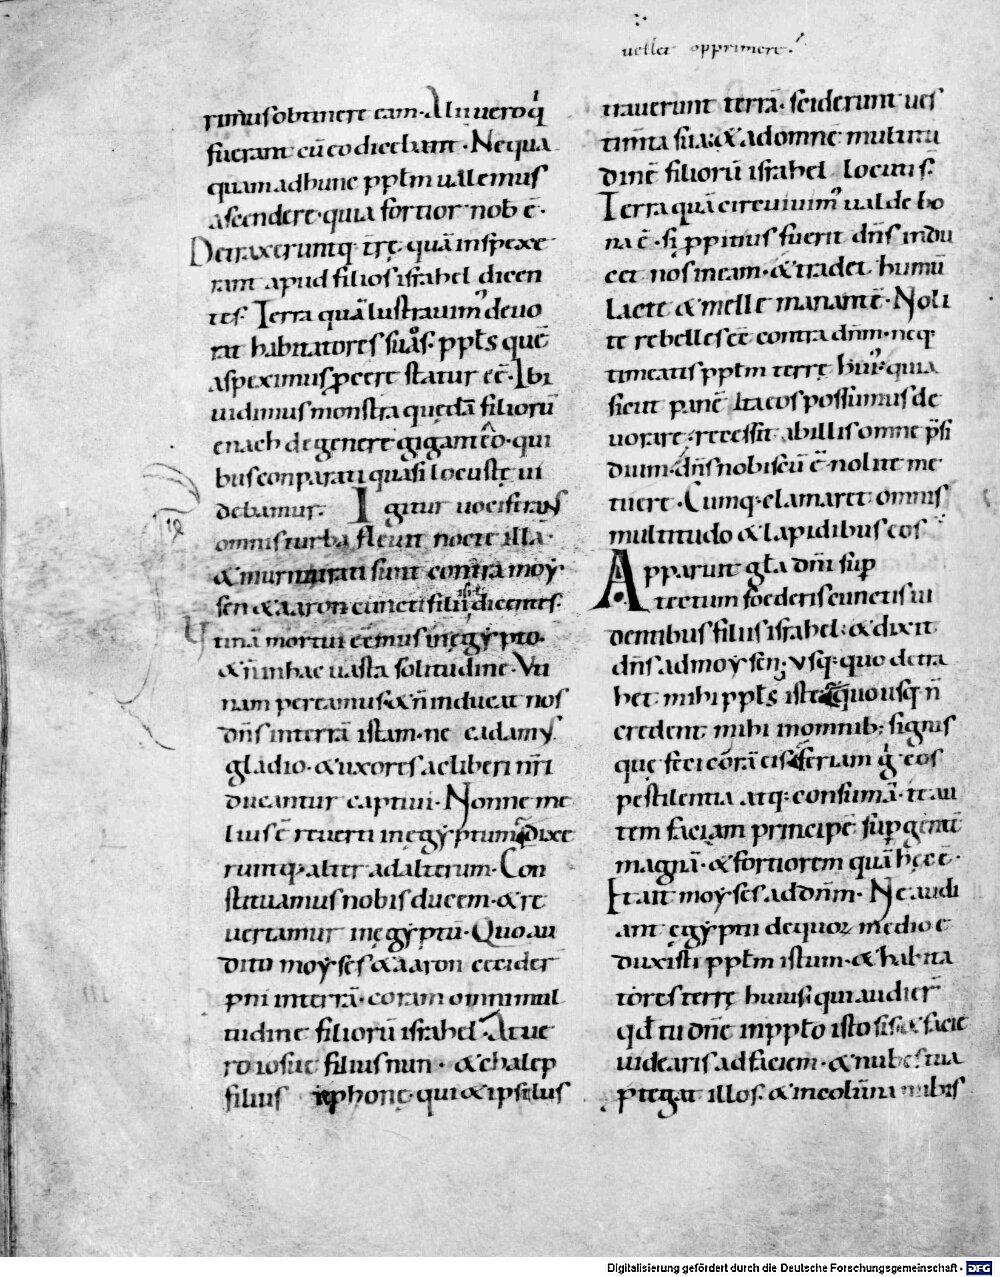 uellet opprimere.
rimus obtinere eam. Alii uero q̇
fuerant cū eo dicebant. Nequa
quam ad hunc pplm ualemus
ascendere. quia fortior nob ē.
Detraxeruntq; trę quā inspexe
rant apud filios israhel dicen
tes. Terra quā lustrauim' deuo
rat habitatores suos. ppls quē
aspeximus pcere stature ē. Ibi
uidimus monstra quedā filiorū
enach de genere giganteo. qui
bus conparati quasi locustę ui
debamur. Igitur uociferans
omnis turba fleuit nocte illa.
& murmurati sunt contra moy
sen & aaron cuncti filii isrl dicentes.
Utinā mortui eēmus in ęgypto.
& n̄ in hac uasta solitudine. Uti
nam pereamus. & n̄ inducat nos
dn̄s in terrā istam. ne cadam'
gladio. & uxores ac liberi nr̄i
ducantur captiui. Nonne me
lius ē reuerti in ęgyptum. Dixe
runtq; alter ad alterum. Con
stituamus nobis ducem. & re
uertamur in ęgyptū. Quo au
dito moyses & aaron cecider
pni in terrā. coram omni mul
titudine filiorū israhel. At ue
ro iosue filius nun. & chalep
filius iephonę. qui & ipsi lus
trauerunt terrā. sciderunt ues
tim̄ta sua. & ad omnē multitu
dinē filiorū israhel locuti s̄.
Terra quā circuiuim' ualde bo
na ē. si ppitius fuerit dn̄s indu
cet nos in eam. & tradet humū
lacte & melle manantē. Noli
te rebelles eē contra dn̄m. neq;
timeatis pplm terrę hui'. quia
sicut panē ita eos possumus de
uorare. recessit ab illis omne p̄si
dium. dn̄s nobiscū ē nolite me
tuere. Cumq; clamaret omnis
multitudo & lapidibus eos
Apparuit gla dn̄i sup
tectum foederis cunctis ui
dentibus filiis israhel. & dixit
dn̄s ad moysen. Usq; quo detra
het mihi ppls iste. quousq; n̄
credent mihi in omnib; signis
que feci corā eis. feriam ġ eos
pestilentia atq; consumā. te au
tem faciam principē sup gentē
magnā. & fortiorem quā hęc ē.
Et ait moyses ad dn̄m. Ne audi
ant ęgyptii de quoꝝ medio e
duxisti pplm istum. & habita
tores terrę huius. qui audier
qd tu dn̄e in pplo isto sis. & facie
uidearis ad faciem. & nubes tua
ptegat illos. & in colūna nubis
Digitalisierung gefördert durch die Deutsche Forschungsgemeinschaft - DFG